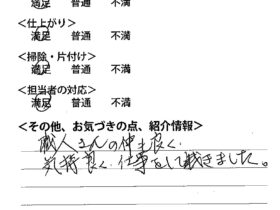 満足 普通 不満
<仕上がり>
満足 普通 不満
<掃除・片付け>
満足 普通 不満
<担当者の対応>
満足 普通 不満
<その他、お気づきの点、紹介情報>
職人さんの仲も良く、
気持良く仕事をして戴きました。